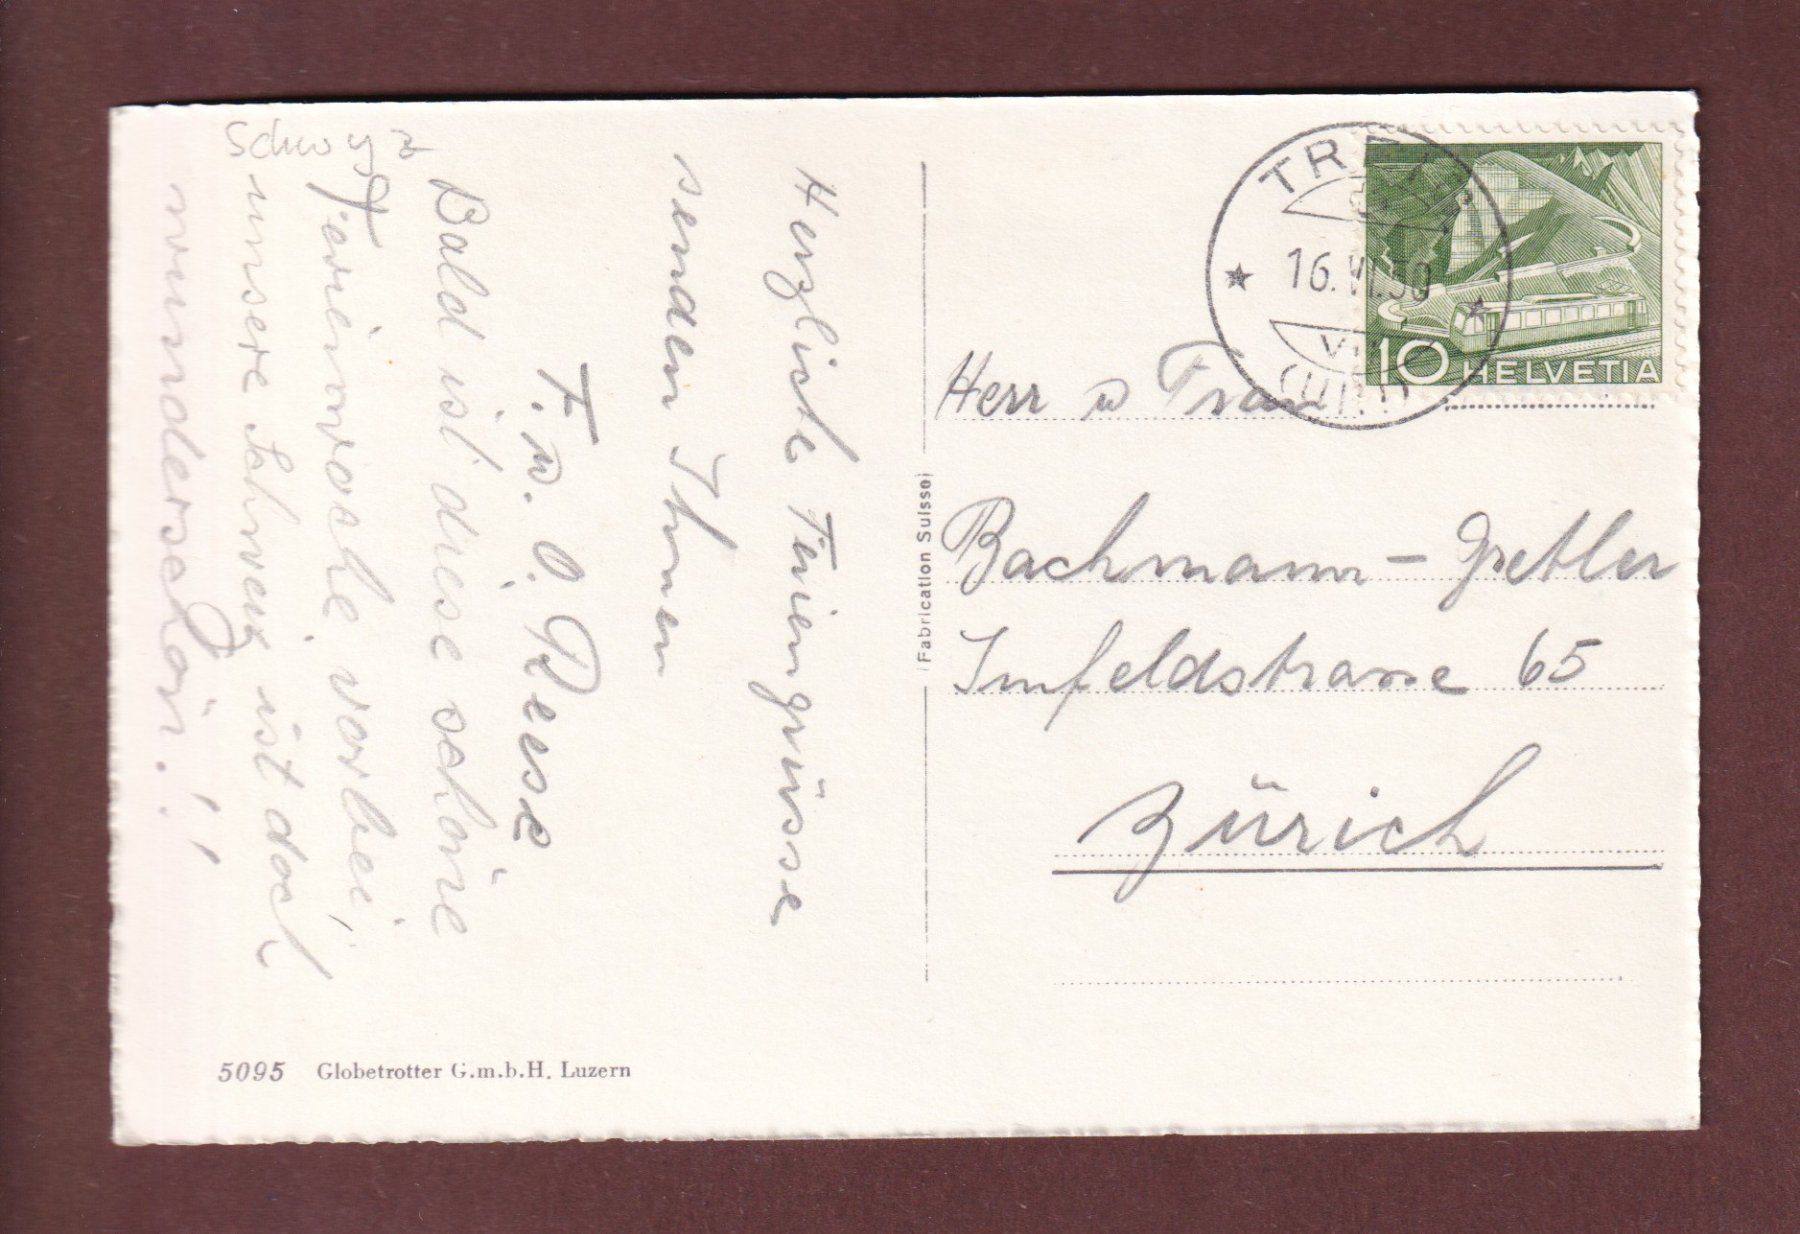 Schwyz
Herzliche Feriengrüsse
senden Ihnen
F. u. O. Reese
Bald ist diese schöne
Ferienwoche vorbei,
unsere Schweiz ist doch
wunderschön!!
Fabrication Suisse
16.VI.50
10 HELVETIA
Herr u Frau
Bachmann - Gretler
Imfeldstrasse 65
Zürich
5095 Globetrotter G.m.b.H. Luzern